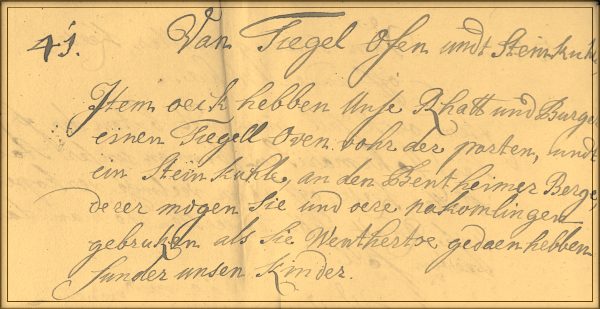 41.
Van Tiegel Ofen undt Steinkuhle,
Item oeck hebben Unse Rhatt und Burger
einen Tiegell Oven vohr der porten, undt
ein Steinkuhle, an den Bentheimer Berge,
derer mogen sie und oere nakomlingen
gebruken als sie Wenthertoe gedaen hebben
sunder unsen kinder.